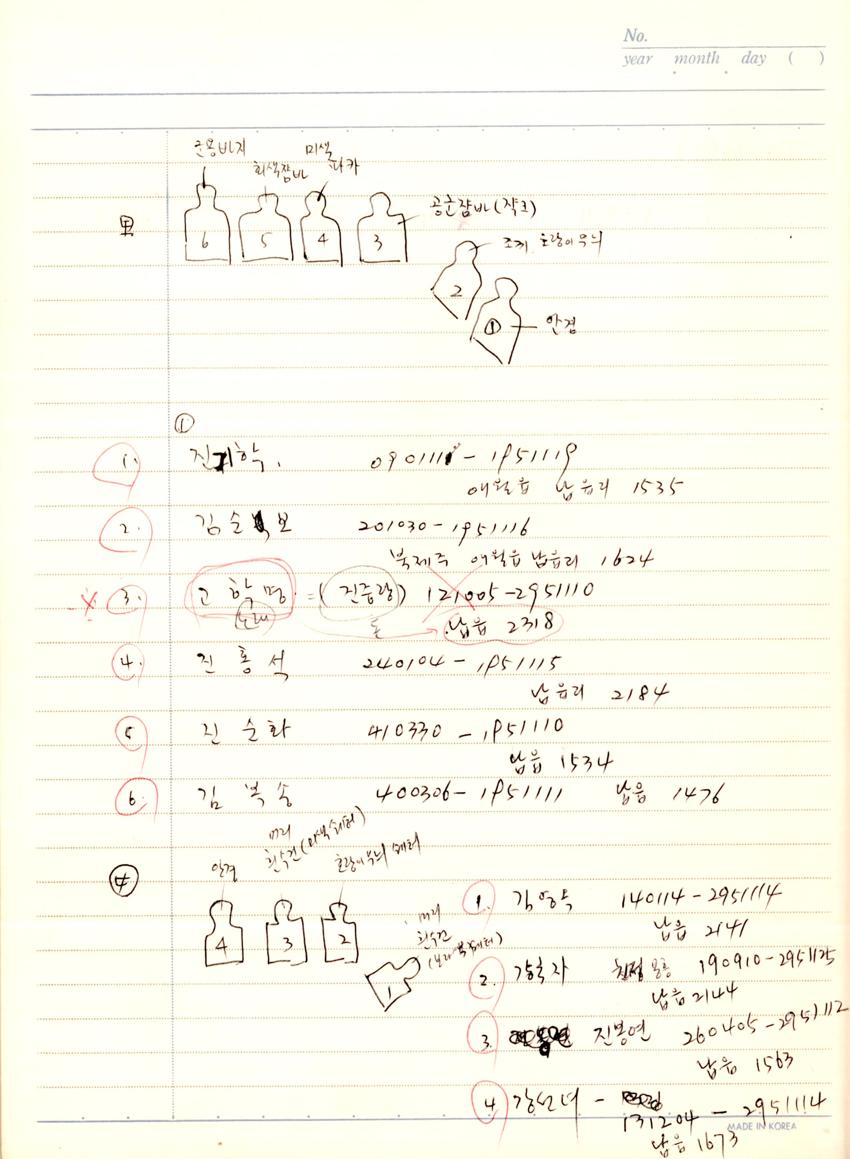 No.
year month day ( )
군용바지
회색잠바
미색
파카
男 6 5 4 3 공군잠바(쟉크)
조끼 호랑이무늬
2
① 안경
①
1. 진 학. 090111 - 1951119
애월읍 납읍리 1535
2. 김순 보 201030-1951116
북제주 애월읍 납읍리 1624
3. 고학명 = (진중랑) 121005-2951110
노래 납읍 2318
4. 진홍석 240104-1951115
납읍리 2184
5 진순화 410330-1951110
납읍 1534
6. 김북송 400306-1951111 납읍 1476
머리
안경 흰수건
호랑이무늬 쉐터
女 4 3 2
머리
흰수건
1
1. 140114-2951114
납읍 2141
2. 190910-2951125
납읍 2144
3. 진봉연 260405-2951112
납읍 1563
4 강선녀 -
131204 - 2951114
납읍 1673
MADE IN KOREA